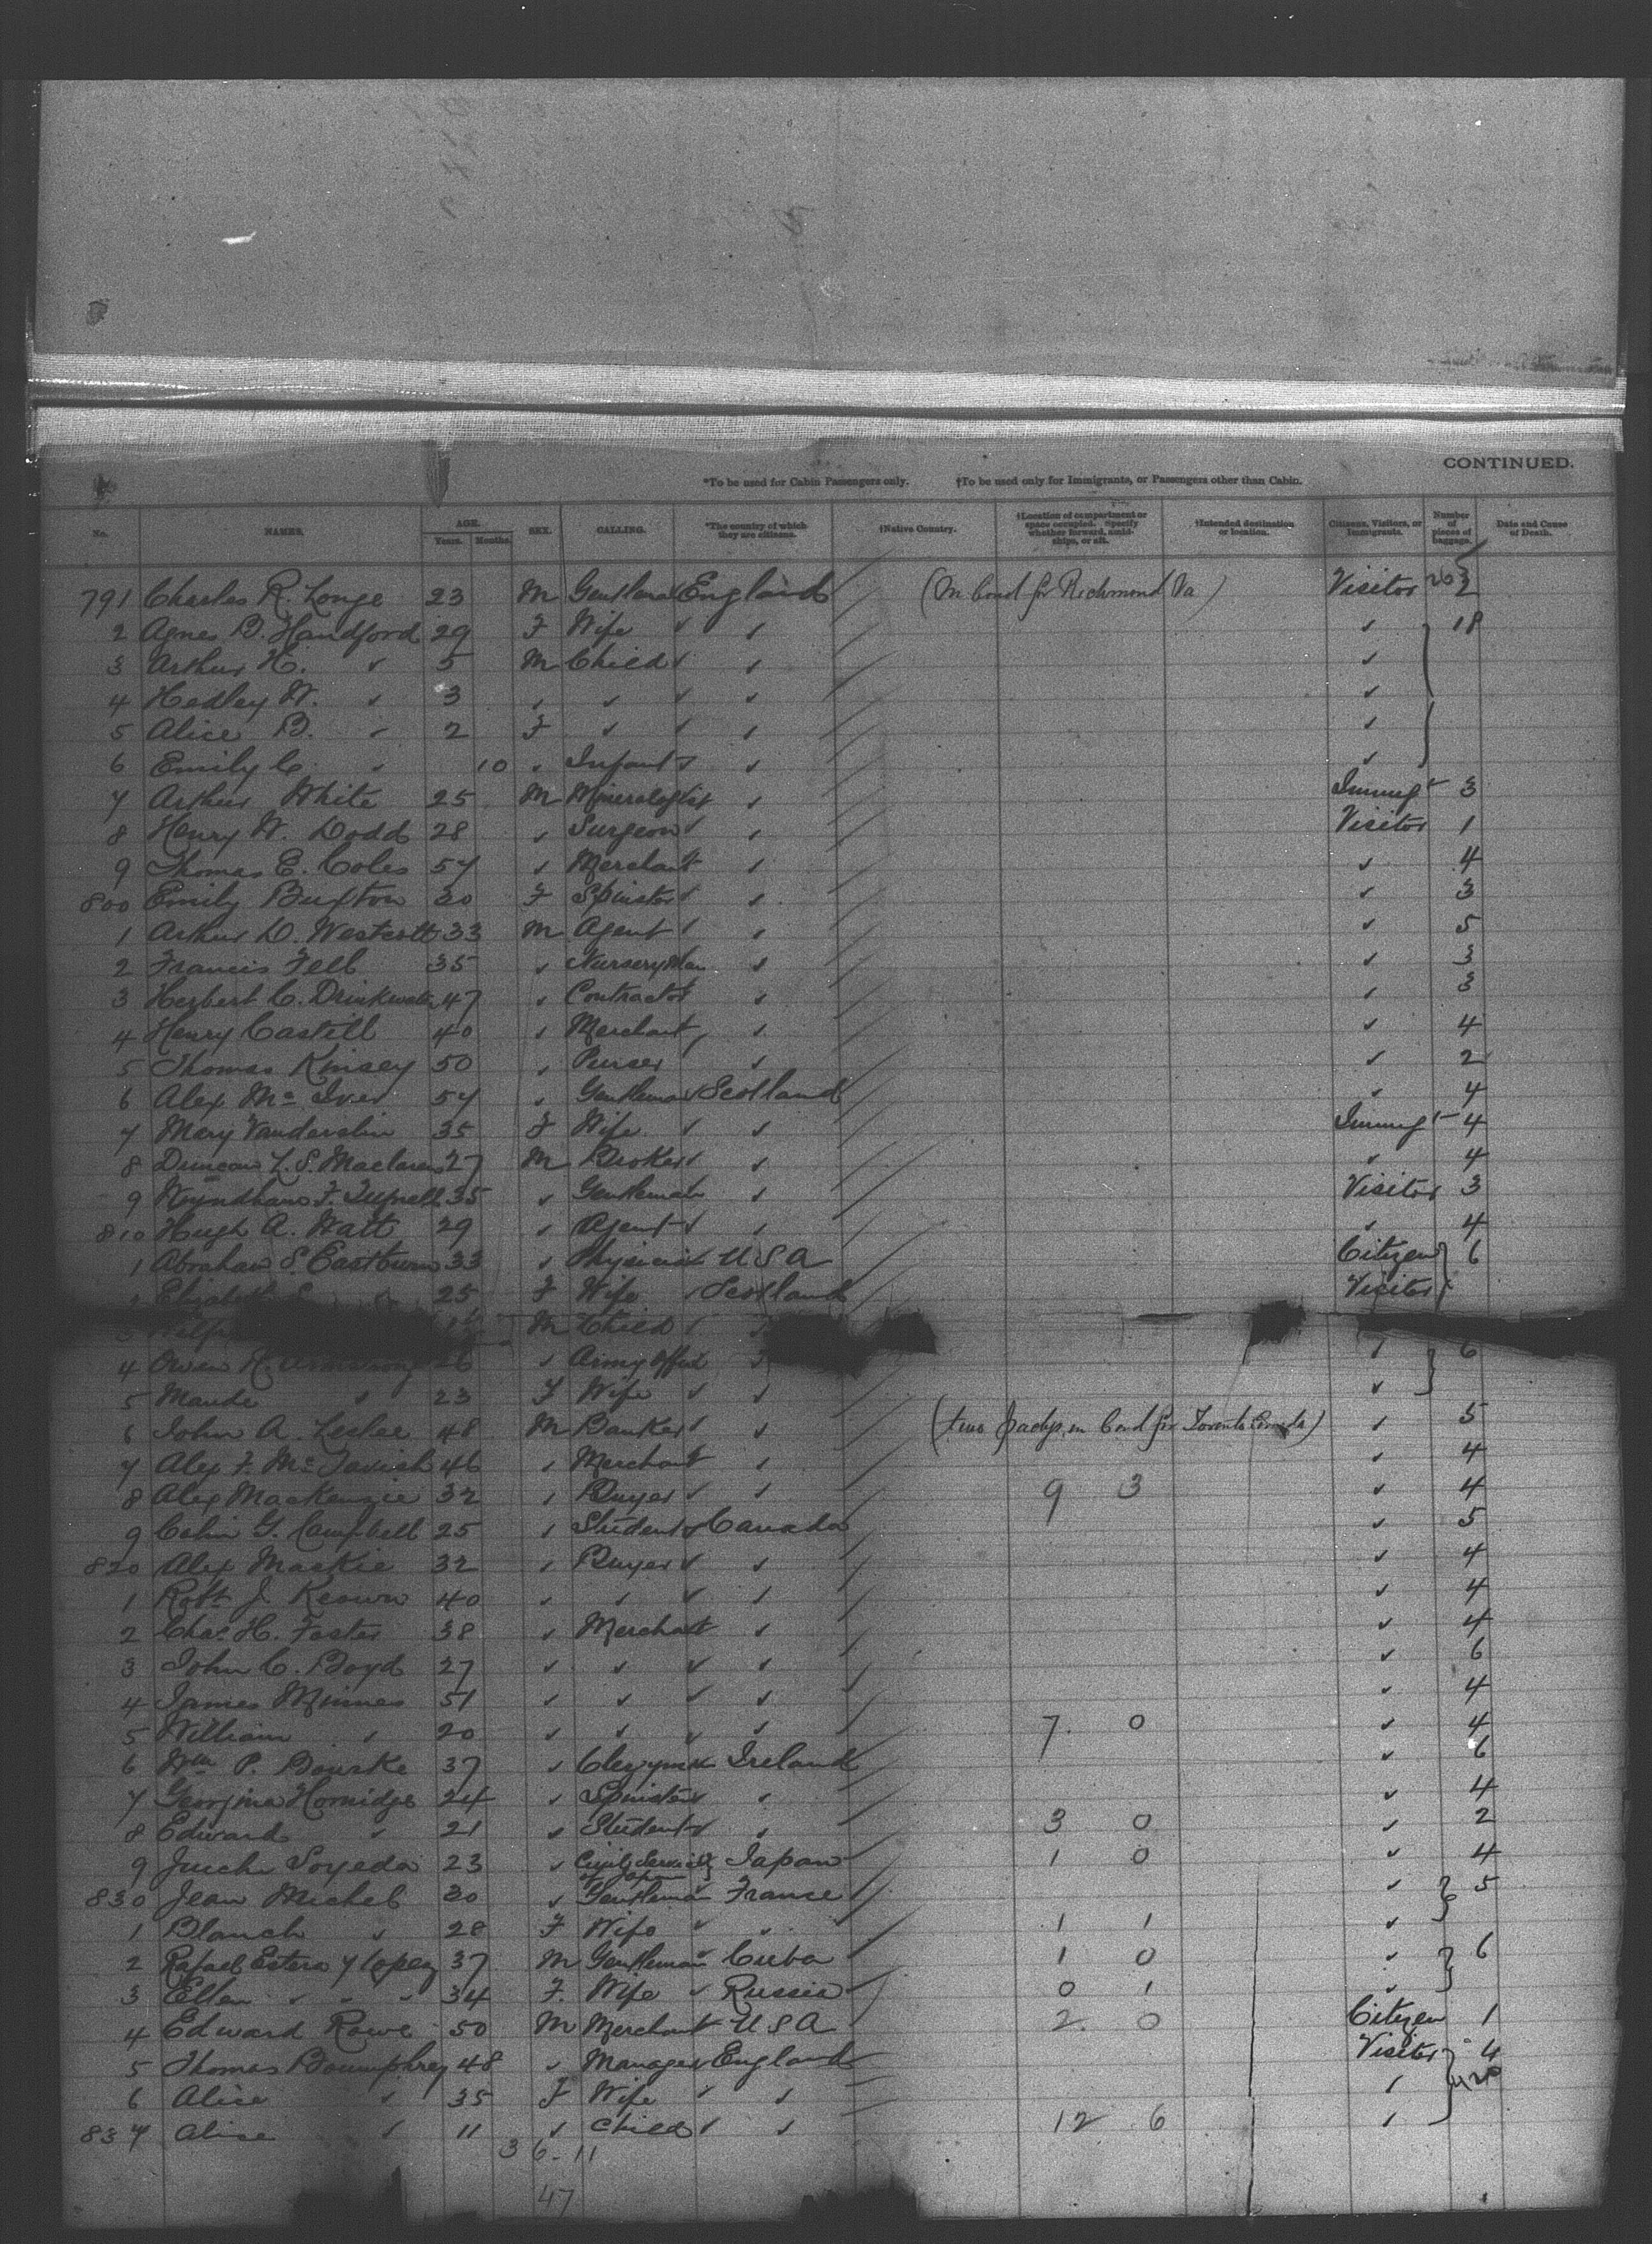 CONTINUED.
*To be used for Cabin Passengers only. †To be used only for Immigrants, or Passengers other than Cabin.
No. NAMES. AGE. Years. Months. SEX. CALLING. *The country of which they are citizens. †Native Country. †Location of compartment or space occupied. Specify whether forward, amidships, or aft. †Intended destination or location. Citizens, Visitors, or Immigrants. Number of pieces of baggage. Date and Cause of Death.
791 Charles R. Longe 23 M Gentleman England (In bond for Richmond Va) Visitor 2
2 Agnes B. Handford 29 F Wife ✓ ✓ ✓ 18
3 Arthur H. ✓ 5 M Child ✓ ✓ ✓
4 Hedley W. ✓ 3 ✓ ✓ ✓ ✓ ✓
5 Alice B. ✓ 2 F ✓ ✓ ✓ ✓
6 Emily C. ✓ 10 ✓ Infant ✓ ✓ ✓
7 Arthur White 25 M Minerologist ✓ Immigt 3
8 Henry W. Dodd 28 ✓ Surgeon ✓ ✓ Visitor 1
9 Thomas E. Coles 57 ✓ Merchant ✓ ✓ 4
800 Emily Buxton 30 F Spinster ✓ ✓ ✓ 3
1 Arthur D. Westcott 33 M Agent ✓ ✓ ✓ 5
2 Francis Fell 35 ✓ Nurseryman ✓ ✓ 3
3 Herbert C. Drinkwater 47 ✓ Contractor ✓ ✓ 3
4 Henry Castell 40 ✓ Merchant ✓ ✓ 4
5 Thomas Kinsey 50 ✓ Purser ✓ ✓ 2
6 Alex Mc Iver 57 ✓ Gentleman Scotland ✓ 4
7 Mary Vanderslin 35 F Wife ✓ ✓ Immigt 4
8 Duncan L. S. Maclaren 27 M Broker ✓ ✓ ✓ 4
9 Wyndham F. Tufnell 35 ✓ Gentleman ✓ Visitor 3
810 Hugh A. Watt 29 ✓ Agent ✓ ✓ ✓ 4
1 Abraham S. Eastburn 33 ✓ Physician U S A Citizen 6
Elizabeth 25 F Wife ✓ Scotland Visitor
M Child ✓
4 Owen H. Armstrong 26 ✓ Army Offic ✓ ✓ 6
5 Maude ✓ 23 F Wife ✓ ✓ ✓
6 John A. Leslie 48 M Banker ✓ ✓ (two packgs in bond for Toronto Canada) ✓ 5
7 Alex F. Mc Tavish 46 ✓ Merchant ✓ ✓ 4
8 Alex Mackenzie 32 ✓ Buyer ✓ ✓ 9 3 ✓ 4
9 Colin G. Campbell 25 ✓ Student ✓ Canada ✓ 5
820 Alex Mackie 32 ✓ Buyer ✓ ✓ ✓ 4
1 Robt J. Keown 40 ✓ ✓ ✓ ✓ ✓ 4
2 Chas. H. Foster 38 ✓ Merchant ✓ ✓ 4
3 John C. Boyd 27 ✓ ✓ ✓ ✓ ✓ 6
4 James Minnes 51 ✓ ✓ ✓ ✓ ✓ 4
5 William ✓ 20 ✓ ✓ ✓ ✓ 7 0 ✓ 4
6 Wm P. Bourke 37 ✓ Clergyman Ireland ✓ 6
7 Georgina Hornidge 24 ✓ Spinster ✓ ✓ ✓ 4
8 Edward ✓ 21 ✓ Student ✓ ✓ 3 0 ✓ 2
9 Juichi Soyeda 23 ✓ Civil Service of Japan } Japan 1 0 ✓ 4
830 Jean Michel 30 ✓ Gentleman France ✓ 5
1 Blanch ✓ 28 F Wife ✓ ✓ 1 1 ✓
2 Rafael Estera y Lopez 37 M Gentleman Cuba 1 0 ✓ 6
3 Ellen ✓ ✓ ✓ 34 F. Wife ✓ Russia 0 1 ✓
4 Edward Rowe 50 M Merchant U S A 2 0 Citizen 1
5 Thomas Boumphrey 48 ✓ Manager England Visitor 4
6 Alice ✓ 35 F Wife ✓ ✓ ✓
837 Alice ✓ 11 ✓ Child ✓ ✓ 12 6 ✓
36-11
47